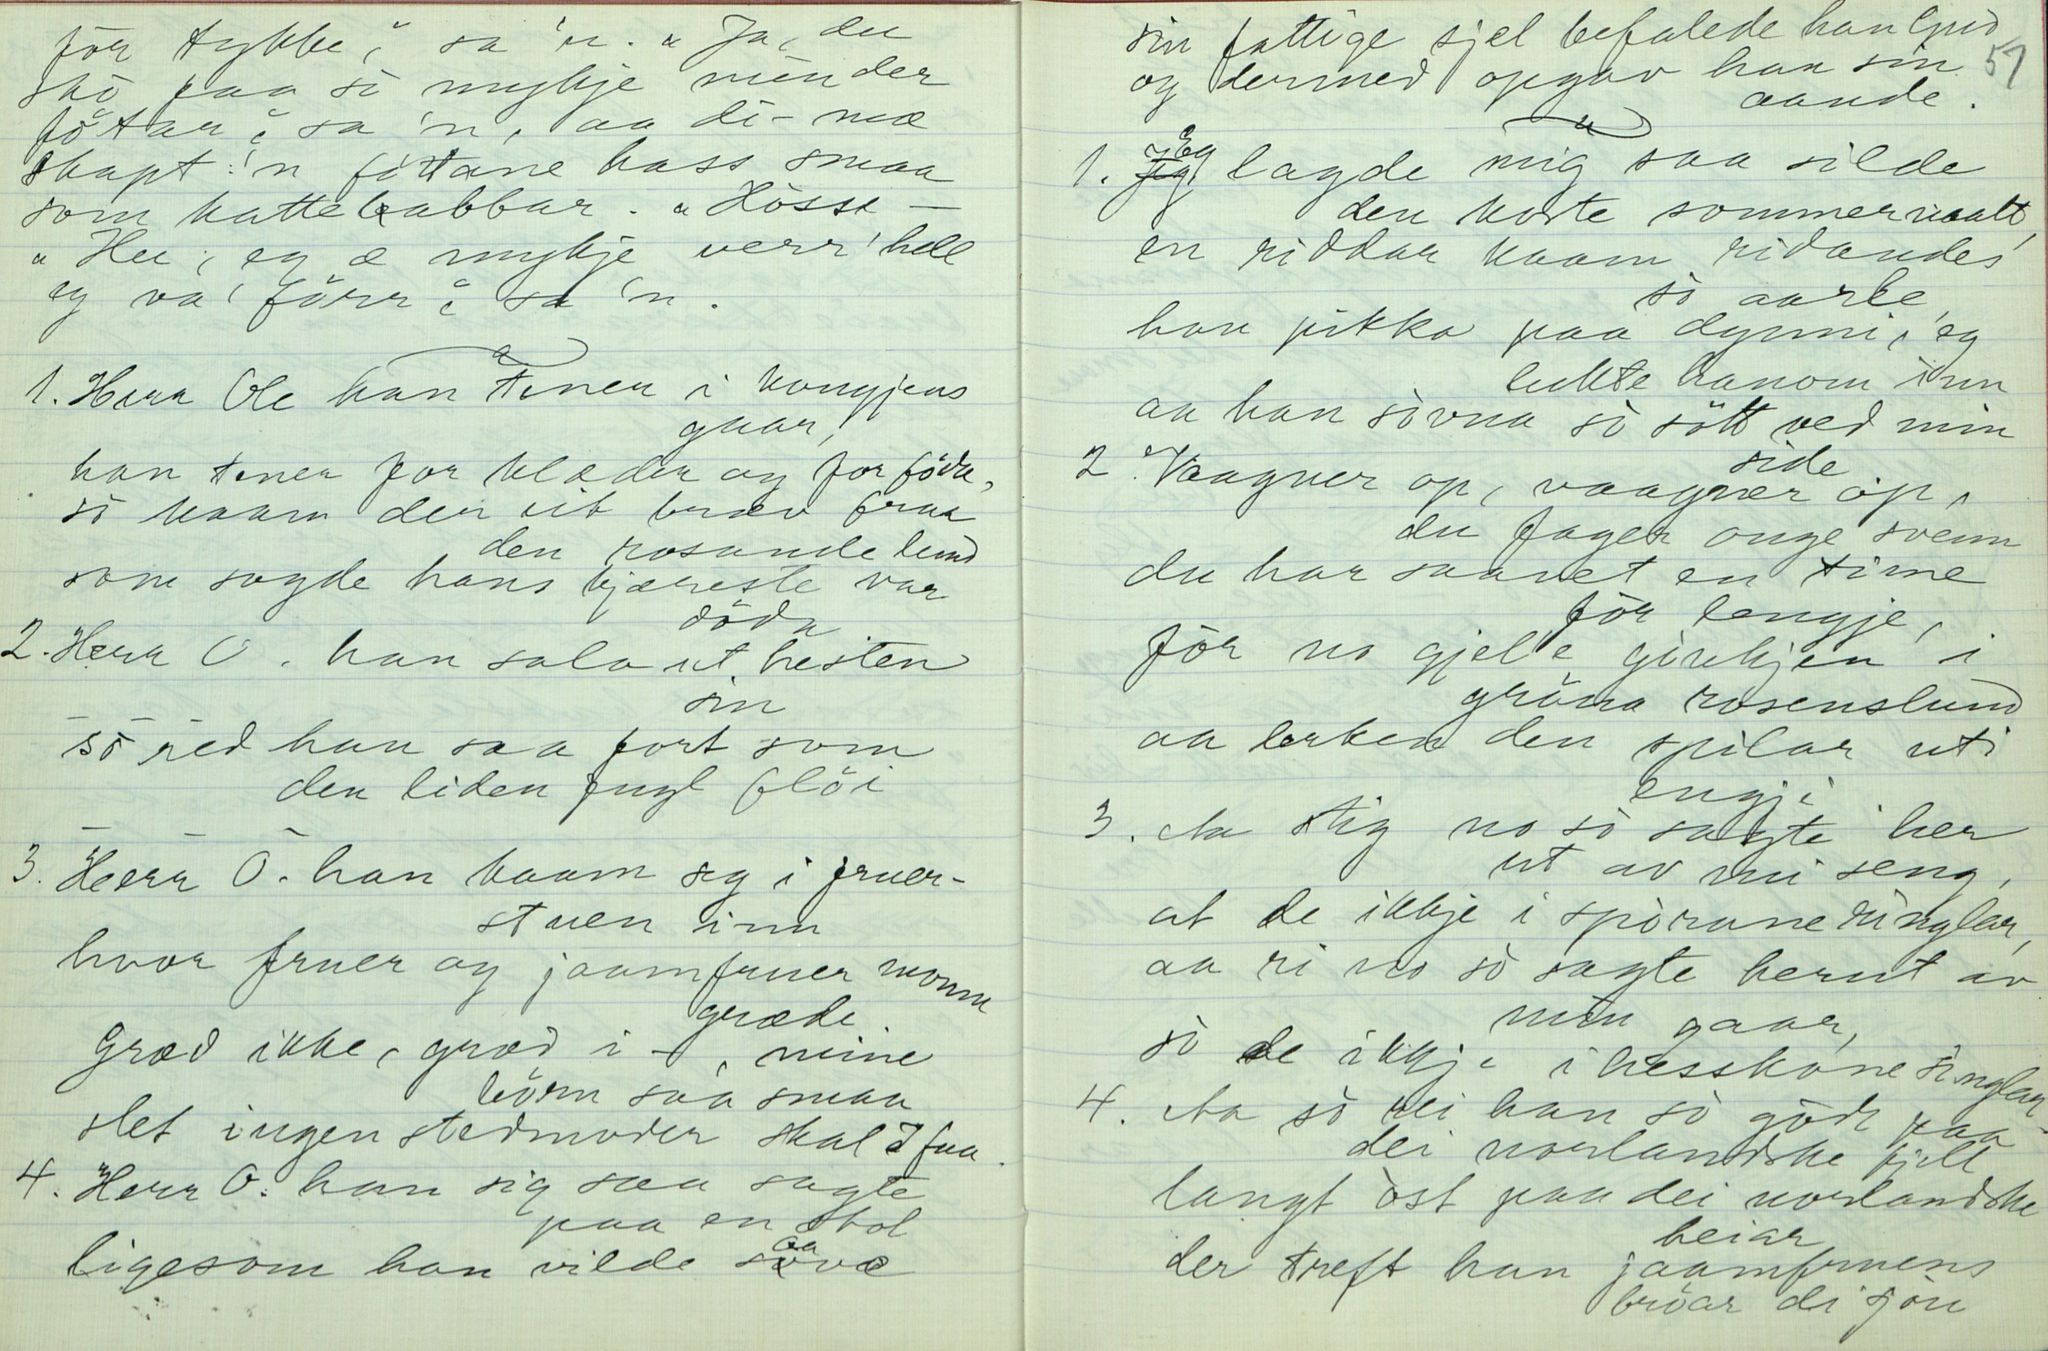 för tykke", sa 'n. "Ja, du
sko paa si mykje minder
föttar", sa 'n, aa di - mæ
skapt 'n föttane hass smaa
som kattelabbar. "Hösse -
"Hu, eg æ mykje verr' hell
eg va' förr", sa 'n.
1. Herr Ole han tener i kongjens
gaar,
han tener for klæder og for föda,
sò kaam der eit brev fraa
den rosande lund
som sagde hans kjæreste var
döda
2. Herr O. han sala ut hesten
sin
sò red han saa fort som
den liden fugl flöi
3. Herr O. han kaam seg i fruer-
stuen inn
hvor fruer og jaamfruer monne
græde.
Græd ikke, græd i -, mine
börn saa smaa
slet ingen stedmoder skal I faa.
4. Herr O. han sig saa sagte
paa en stol
ligesom han vilde saave
sin fattige sjel befalede han Gud
og dermed opgav han sin
aande.
57
1. Jeg lagde mig saa silde
den korte sommernatt,
en riddar kaam ridandes
sò aarle,
han pikka paa dynni, eg
lukte hanom inn
aa han sòvna sò sött ved min
side
2. Vaagner op, vaagner op,
du fager onge svenn
du har saavet en time
för lengje,
för no gjel'e gaukjen i
gröna rosenslund
aa lerken den spilar uti
engji
3. Aa stig no sò sagte her
ut av mi seng,
at de ikkje i spòrane ringlar,
aa ri no sò sagte herut av
min gaar,
sò de ikkje i hesskone singlar.
4. Aa sò rei han sò gòdt paa
dei norlandske fjell
langt òst paa dei norlandske
heiar
der treft han jaamfruens
bröar di sju